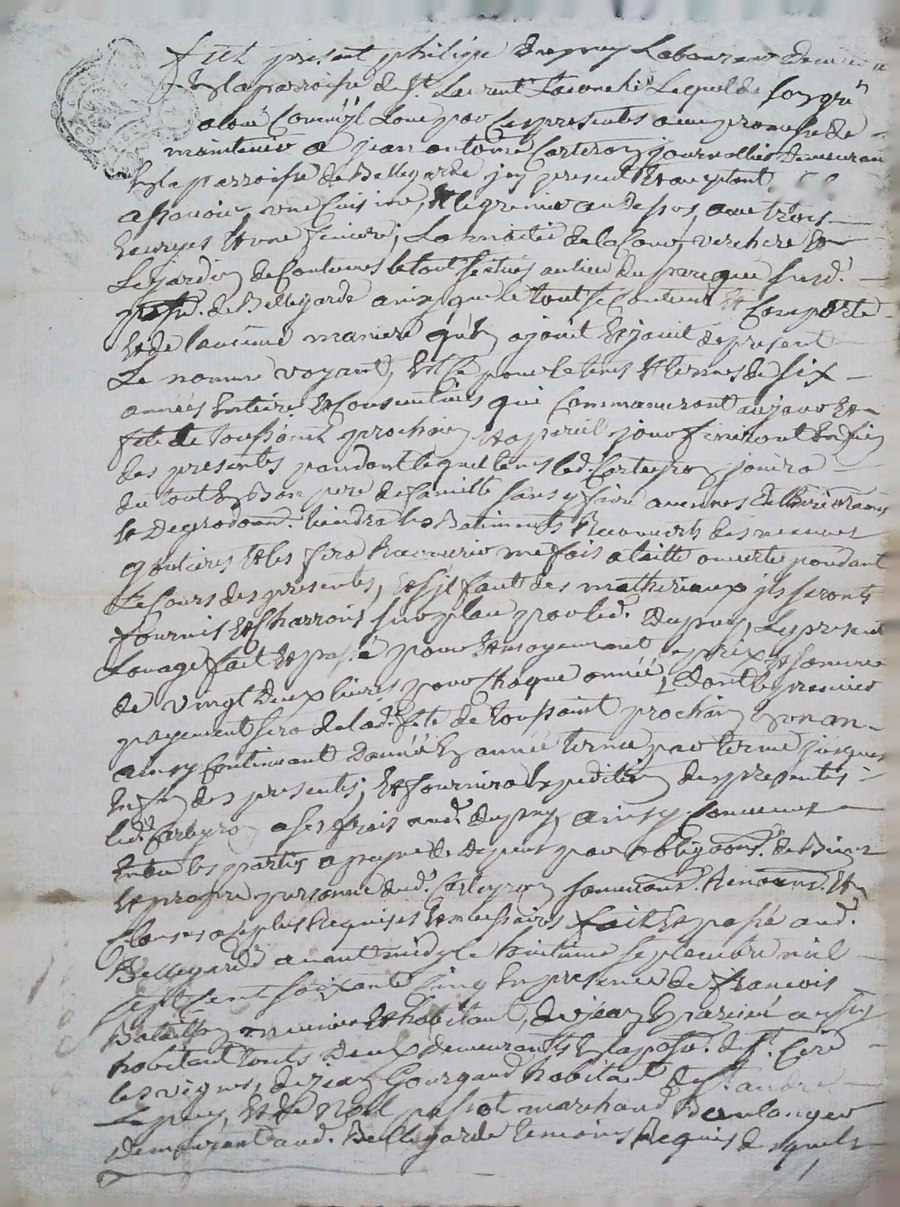 fut present philippe dupuy Laboureur demeurant
En la parroisse de St. Laurent Laconche Lequel de son gré
a loué Comme il Loue par Ces presentes avec promesse de
maintenir a jean antoine Carteron journallier demeurant
En la parroisse de Bellegarde icy present Et acceptant
a scavoir, une Cuisine, Et le grenier au dessus, avec trois
Ecuryes Et une feniere, La moitié de la Cour, verchere Et
Le jardin de Contenus le tout scitués au lieu du parcque susd.
parr. de Bellegarde ainsy que le tout se Contient Et Comporte
Et de la meme maniere qu'En a jouit Et jouit a present
Le nommé voyant, Et Ce pour le tems Et termes de six
années Entieres Et Consecutives qui Commanceront au jour Et
fête de Toussaint prochain Et a pareil jour finiront En fin
des presentes pendant lequel tems led. Carteyron jouira
du tout En Bon pere de famille sans y faire aucunes
Et Degradaon. tiendra les Batiments Recouverts des
goutieres Et les fera Recourir une fois a taille ouverte pendant
Le Cours des presentes, Et s'il faut des matheriaux ils seronts
fournis Et Charroiés sur place par led. Dupuy, Le present
Louage fait Et passé pour Et moyennant le prix Et somme
de vingt deux livres pour Chaque année, Dont le premier
payement sera de lad. fête de Toussaint prochain En un an
ainsy Continuant d'année En année terme par terme jusques
En fin des presentes; Et fournira Expedition des presentes
led. Carteyron a ses frais aud. dupuy ainsy Convenu
Entre les parties a peyne de depens par obligaons. de Biens
Et propre personne dud. Carteyron soumissons. Renonons. Et
Clauses a ce plus Requises Et necessaires fait Et passé aud.
Bellegarde avant midy le huitieme septembre mil
sept cent soixante cinq En presence de francois
Bataillon Et habitant, de jean aussy
habitant touts Deux demeurants En la parr. de St. Cire
les vignes, de jean Gourgaud habitant de St. andré
Le puy, Et de Noel passot marchand Boulanger
demeurant aud. Bellegarde temoins Requis desquels